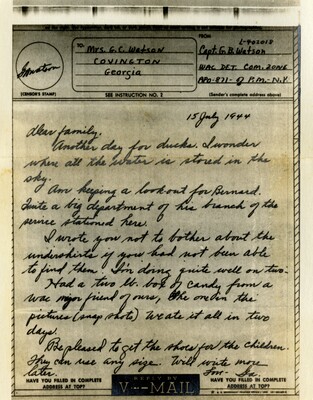 TO:
Mrs. G. C. Watson
COVINGTON
Georgia
FROM
L-902018
Capt. G. B. Watson
WAC DET. COM. ZONE
APO-871- % P.M.-N.Y.
(CENSOR'S STAMP)
SEE INSTRUCTION NO. 2
(Sender's complete address above)
15 July 1944
Dear family,
Another day for ducks. I wonder
where all the water is stored in the
sky.
Am keeping a lookout for Bernard.
Quite a big department of his branch of the
service stationed here.
I wrote you not to bother about the
undershirts if you had not been able
to find them. I'm doing quite well on two.
Had a two lb. box of candy from a
wac major friend of ours, the one in the
pictures (snap shots). We ate it all in two
days.
Be pleased to get the shoes for the children.
They can use any size. Will write more
later.
HAVE YOU FILLED IN COMPLETE
ADDRESS AT TOP?
REPLY BY
V···—MAIL
HAVE YOU FILLED IN COMPLETE
ADDRESS AT TOP?